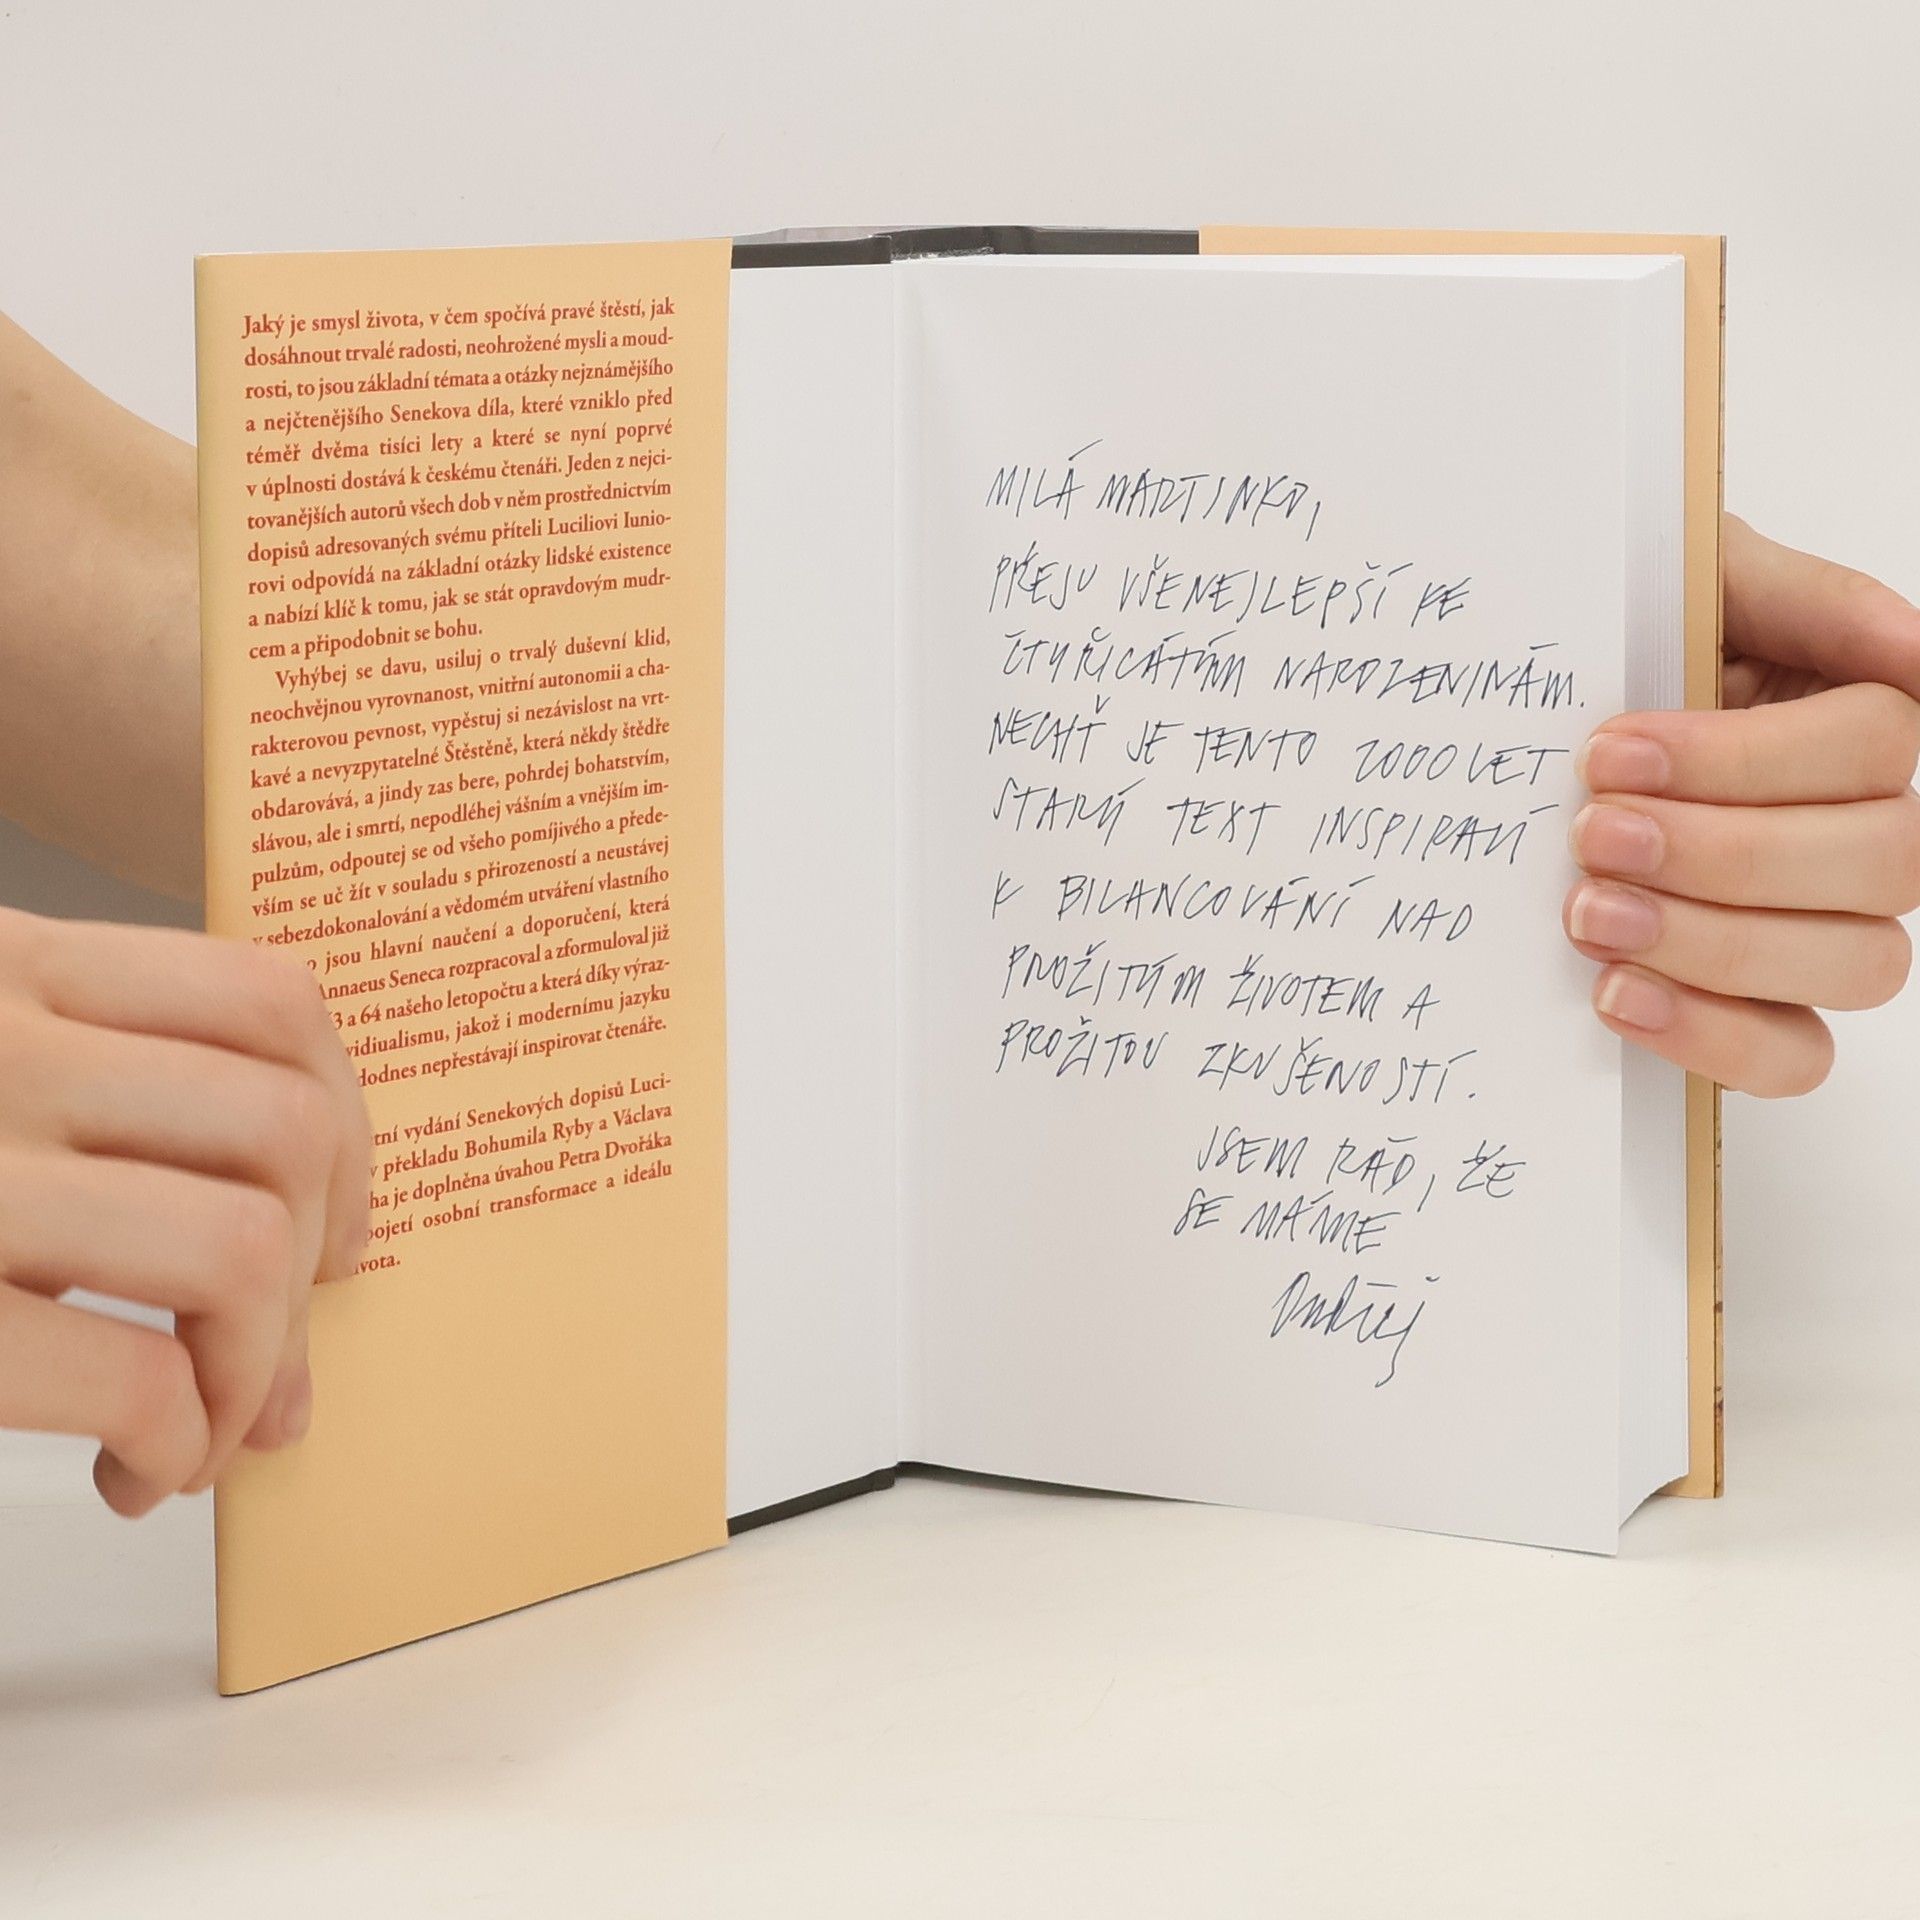 Jaký je smysl života, v čem spočívá pravé štěstí, jak
dosáhnout trvalé radosti, neohrožené mysli a moud-
rosti, to jsou základní témata a otázky nejznámějšího
a nejčtenějšího Senekova díla, které vzniklo před
téměř dvěma tisíci lety a které se nyní poprvé
v úplnosti dostává k českému čtenáři. Jeden z nejci-
tovanějších autorů všech dob v něm prostřednictvím
dopisů adresovaných svému příteli Luciliovi Iunio-
rovi odpovídá na základní otázky lidské existence
a nabízí klíč k tomu, jak se stát opravdovým mudr-
cem a připodobnit se bohu.
Vyhýbej se davu, usiluj o trvalý duševní klid,
neochvějnou vyrovnanost, vnitřní autonomii a cha-
rakterovou pevnost, vypěstuj si nezávislost na vrt-
kavé a nevyzpytatelné Štěstěně, která někdy štědře
obdarovává, a jindy zas bere, pohrdej bohatstvím,
slávou, ale i smrtí, nepodléhej vášním a vnějším im-
pulzům, odpoutej se od všeho pomíjivého a přede-
vším se uč žít v souladu s přirozeností a neustávej
v sebezdokonalování a vědomém utváření vlastního
jsou hlavní naučení a doporučení, která
Annaeus Seneca rozpracoval a zformuloval již
3 a 64 našeho letopočtu a která díky výraz-
vidiualismu, jakož i modernímu jazyku
dodnes nepřestávají inspirovat čtenáře.
tní vydání Senekových dopisů Luci-
v překladu Bohumila Ryby a Václava
ha je doplněna úvahou Petra Dvořáka
pojetí osobní transformace a ideálu
ivota.
MILÁ MARTINKO,
PŘEJU VŠENEJLEPŠÍ KE
ČTYŘICÁTÝM NAROZENINÁM.
NECHŤ JE TENTO 2000 LET
STARÝ TEXT INSPIRACÍ
K BILANCOVÁNÍ NAD
PROŽITÝM ŽIVOTEM A
PROŽITOU ZKUŠENOSTÍ.
JSEM RÁD, ŽE
SE MÁME
Ondřej